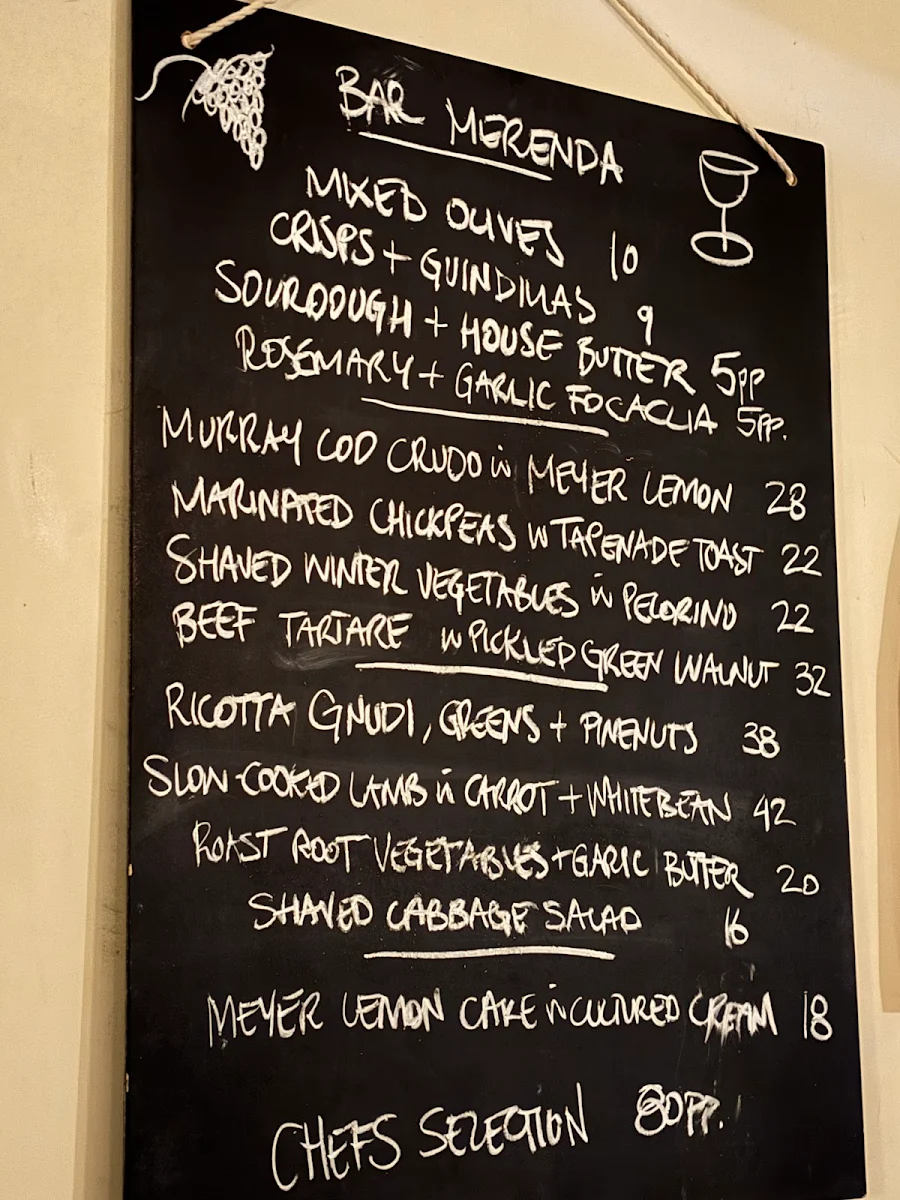 BAR MERENDA
MIXED OLIVES 10
CRISPS + GUINDILLAS 9
SOURDOUGH + HOUSE BUTTER 5pp
ROSEMARY + GARLIC FOCACCIA 5PP.
MURRAY COD CRUDO w MEYER LEMON 28
MARINATED CHICKPEAS w TAPENADE TOAST 22
SHAVED WINTER VEGETABLES w PECORINO 22
BEEF TARTARE w PICKLED GREEN WALNUT 32
RICOTTA GNUDI, GREENS + PINENUTS 38
SLOW-COOKED LAMB w CARROT + WHITEBEAN 42
ROAST ROOT VEGETABLES + GARLIC BUTTER 20
SHAVED CABBAGE SALAD 16
MEYER LEMON CAKE w CULTURED CREAM 18
CHEFS SELECTION 80PP.